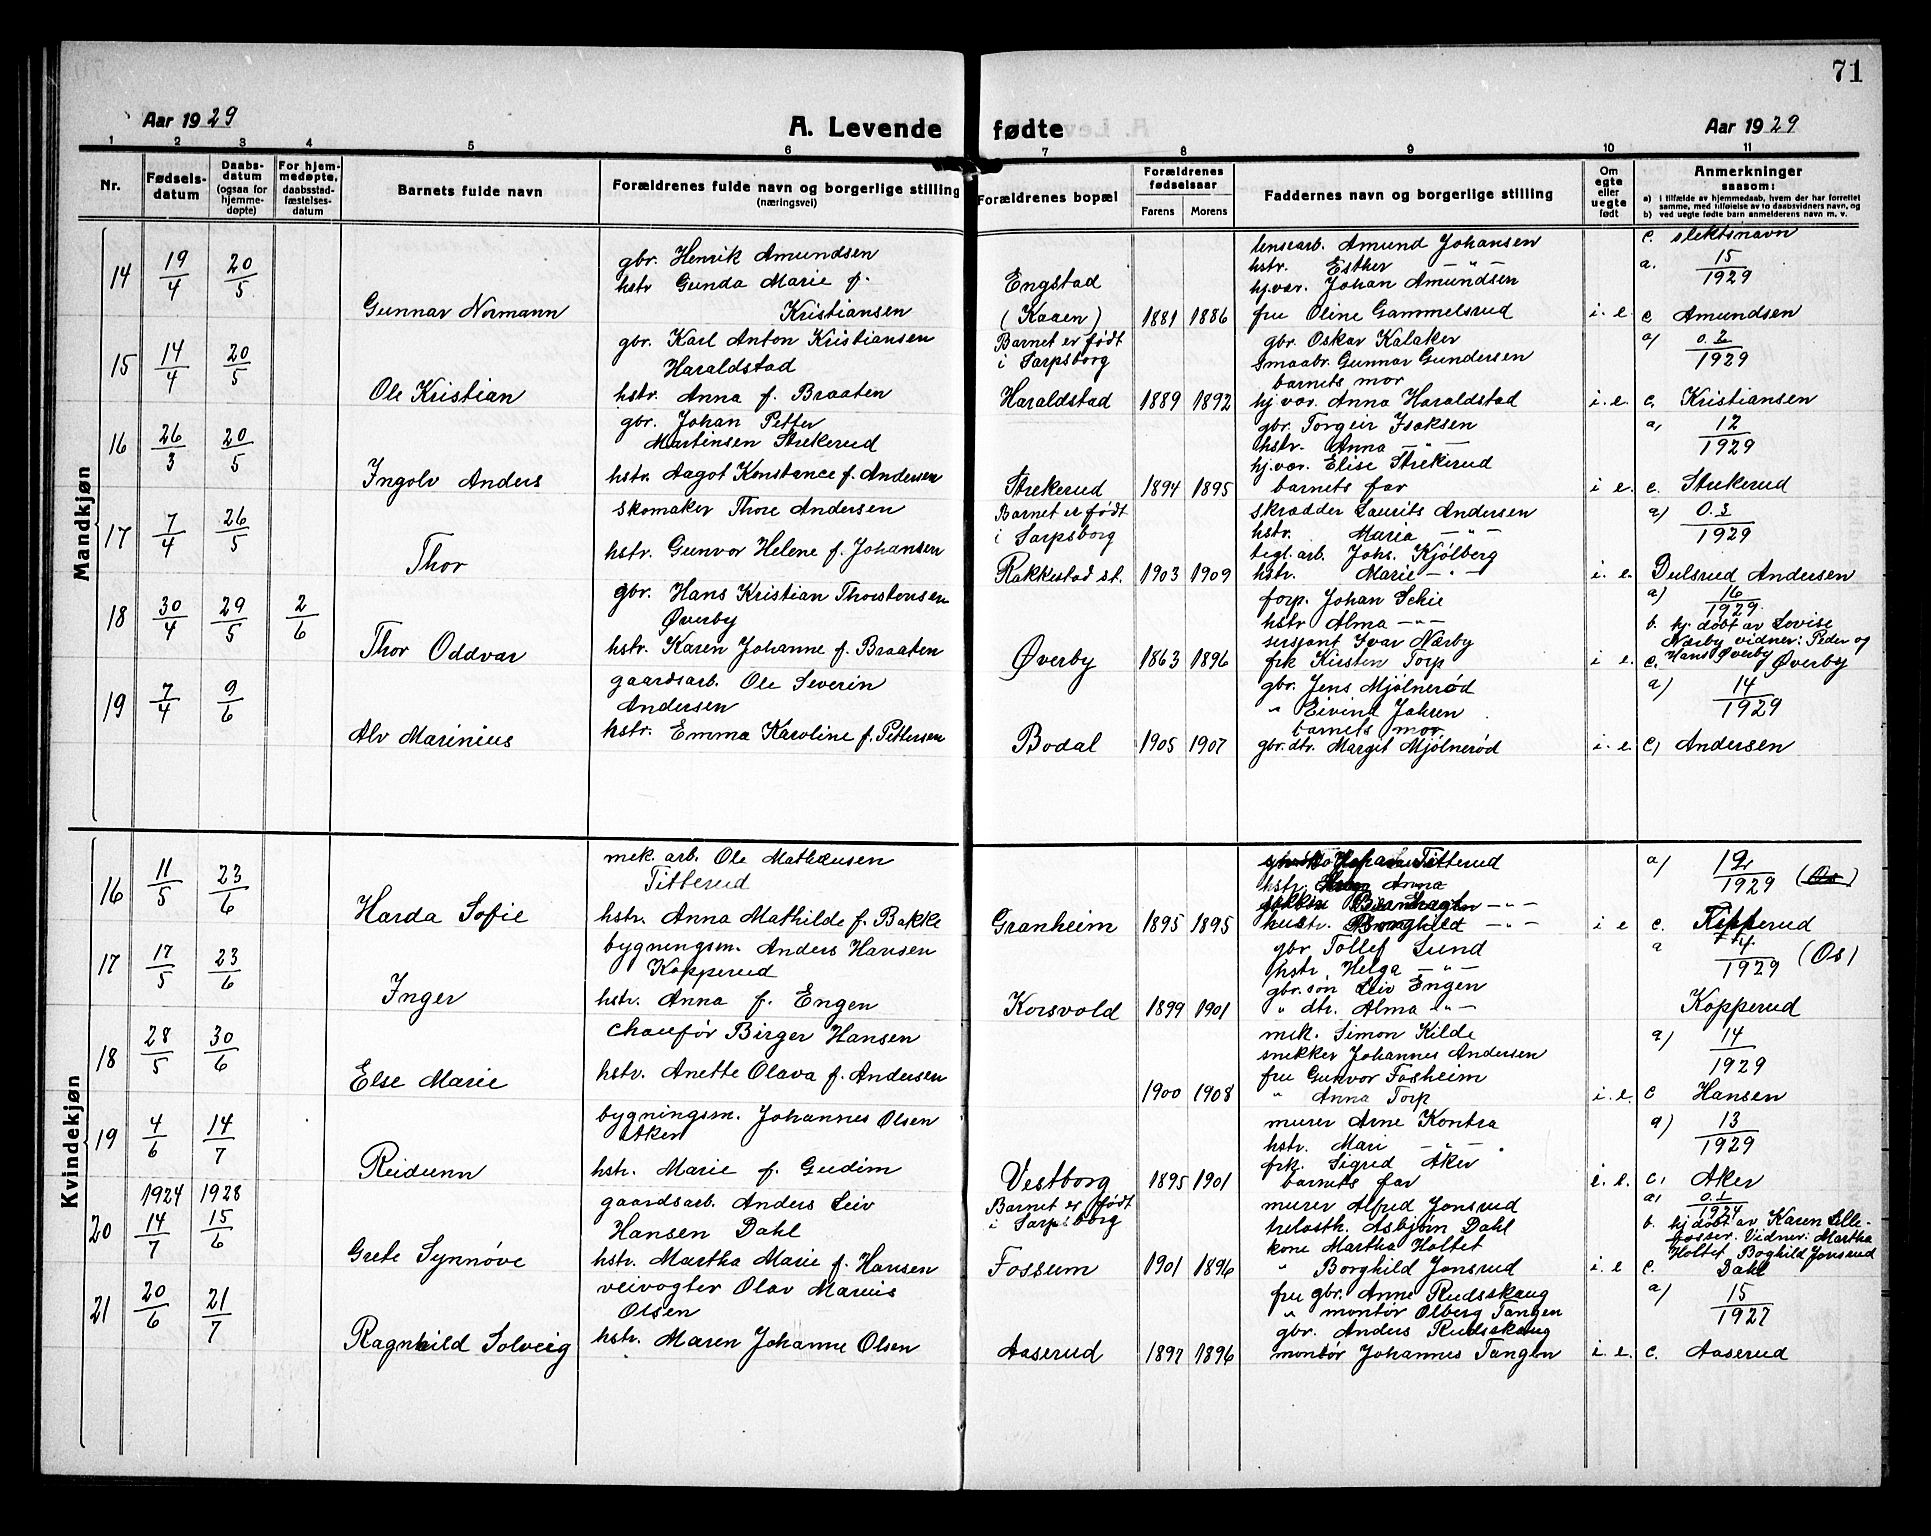 71
Aar 1929
A. Levende fødte
Aar 1929
1 2 3 4 5 6 7 8 9 10 11
Nr.
Fødsels-
datum
Daabs-
datum
(ogsaa for
hjemme-
døpte)
For hjem-
medøpte,
daabsstad-
fæstelses-
datum
Barnets fulde navn
Forældrenes fulde navn og borgerlige stilling
(næringsvei)
Forældrenes bopæl
Forældrenes
fødselsaar
Farens Morens
Faddernes navn og borgerlige stilling
Om
egte
eller
uegte
født
Anmerkninger
saasom:
a) i tilfælde av hjemmedaab, hvem der har forrettet
samme, med tilføielse av to daabsvidners navn, og
b) ved uegte fødte barn anmelderens navn m. v.
Mandkjøn
14 19/4 20/5
Gunnar Normann
gbr. Henrik Amundsen
hstr Gunda Marie f.
Kristiansen
Engstad
(Kaaen)
1881 1886
lensearb. Amund Johansen
hstr. Esther — " —
hj.var. Johan Amundsen
fru Oline Gammelsrud
i. e.
c. slektsnavn
a. 15/1929
c Amundsen
15 14/4 20/5
Ole Kristian
gbr. Karl Anton Kristiansen
Haraldstad
hstr. Anna f. Braaten
Barnet er født
i Sarpsborg
Haraldstad
1889 1892
gbr. Oskar Kalaker
smaabr. Gunnar Gundersen
barnets mor
hj.var. Anna Haraldstad
i. e.
a) 0.2/1929
c. Kristiansen
16 26/3 20/5
Ingolv Anders
gbr. Johan Petter
Martinsen Strekerud
hstr. Aagot Konstance f. Andersen
Strekerud
1894 1895
gbr. Torgeir Isaksen
hstr. Anna — " —
hj.var. Elise Strekerud
barnets far
i e.
a, 12/1929
c. Strekerud
17 7/4 26/5
Thor
skomaker Thore Andersen
hstr. Gunvor Helene f. Johansen
Barnet er født
i Sarpsborg
Rakkestad st.
1903 1909
skrædder Laurits Andersen
hstr. Maria — " —
tegl. arb. Johs. Kjölberg
hstr. Marie — " —
i. e.
a) 0.3/1929
c. Dulsrud Andersen
18 30/4 29/5 2/6
Thor Oddvar
gbr. Hans Kristian Thorstensen
Øverby
hstr. Karen Johanne f. Braaten
Øverby
1863 1896
forp. Johan Schie
hstr Alma — " —
sersjant Ivar Nærby
frk Kirsten Torp
i e.
a) 16/1929.
b. hj. døbt av Lovise
Nærby vidner: Peder og
Hans Øverby
c. Øverby
19 7/4 9/6
Alv Marinius
gaardsarb. Ole Severin
Andersen
hstr. Emma Karoline f. Pettersen
Bodal
1905 1907
gbr. Jens Mjølnerød
" Eivind Jahren
barnets mor
gbr. dtr. Margit Mjølnerød
i. e.
a) 14/1929
c, Andersen
Kvindekjøn
16 11/5 23/6
Harda Sofie
mek. arb. Ole Mathæusen
Titterud
hstr. Anna Mathilde f. Bakke
Granheim
1895 1895
Titterud
hstr. Anna
hustr. Borghild — " —
i e
a) 12/1929 (Os)
c.
17 17/5 23/6
Inger
bygningsm. Anders Hansen
Kopperud
hstr. Anna f. Engen
Korsvold
1899 1901
gbr. Tollef Lund
hstr. Helga — " —
gbr. søn Leiv Engen
" dtr. Alma — " —
a 14/1929 (Os)
Kopperud
18 28/5 30/6
Else Marie
chauför Birger Hansen
hstr. Anette Olava f. Andersen
1900 1908
mek. Simon Kilde
snekker Johannes Andersen
fru Gunvor Fosheim
" Anna Torp
i. e.
a) 14/1929
c Hansen
19 4/6 14/7
Reidunn
bygningsm. Johannes Olsen
Aker
hstr. Marie f. Gudim
Vestborg
1895 1901
murer Arne Kontra
hstr. Mari — " —
frk. Sigrid Aker
barnets far
i. e.
a) 13/1929
c, Aker
20 1924 14/7 1928 15/6
Grete Synnøve
gaardsarb. Anders Leiv
Hansen Dahl
hstr. Martha Marie f. Hansen
Barnet er født
i Sarpsborg
Fossum
1901 1896
murer Alfred Jonsrud
trelasth. Asbjørn Dahl
kone Martha Holtet
" Borghild Jonsrud
i. e
a, 0.1/1924
b. hj døbt av Karen Lille-
fosser. Vidner: Martha
Holtet, Boghild Jonsrud
c. Dahl
21 20/6 21/7
Ragnhild Solveig
veivogter Olav Marius
Olsen
hstr. Maren Johanne Olsen
Aaserud
1897 1896
fru gbr. Anne Rudsskaug
" montør Olberg Tangen
gbr. Anders Rudsskaug
montør Johannes Tangen
i. e.
a) 15/1927
c. Aaserud